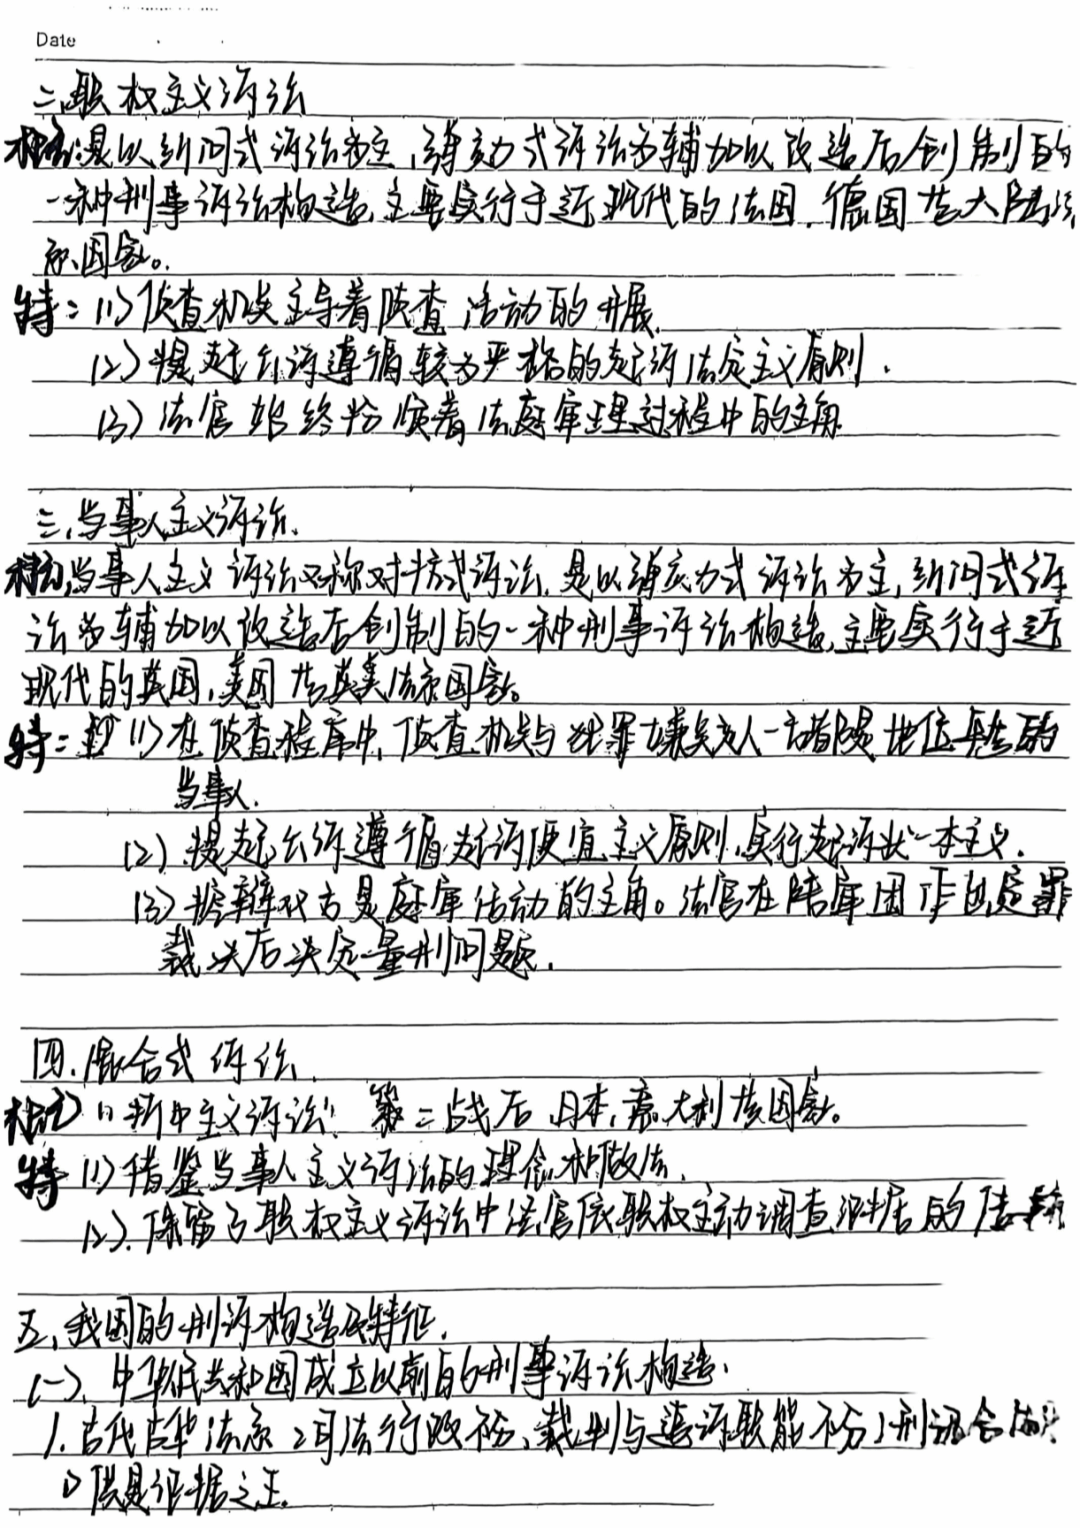 Date
二、职权主义诉讼
概念:是以纠问式诉讼为主,弹劾式诉讼为辅加以改造后创制的
一种刑事诉讼构造,主要实行于近现代的法国、德国等大陆法
系国家。
特:(1)侦查机关主导着侦查活动的开展.
(2)提起公诉遵循较为严格的起诉法定主义原则.
(3)法官始终扮演着法庭审理过程中的主角.
三、当事人主义诉讼.
概念,当事人主义诉讼又称对抗式诉讼,是以弹劾式诉讼为主,纠问式诉
讼为辅加以改造后创制的一种刑事诉讼构造,主要实行于近
现代的英国,美国等英美法系国家。
特:(1)在侦查程序中,侦查机关与犯罪嫌疑人一方都是地位平等的
当事人.
(2).提起公诉遵循起诉便宜主义原则,实行起诉状一本主义.
(3)控辩双方是庭审活动的主角。法官在陪审团作出定罪
裁决后决定量刑问题.
四.混合式诉讼.
概念 "折中主义诉讼" 第二战后 日本,意大利等国家。
特 (1)借鉴当事人主义诉讼的理念和做法.
(2).保留了职权主义诉讼中法官依职权主动调查证据的传统
五,我国的刑诉构造及特征.
(一).中华人民共和国成立以前的刑事诉讼构造.
1.古代中华法系 司法行政不分、裁判与追诉职能不分,刑讯合法,
口供是证据之王.